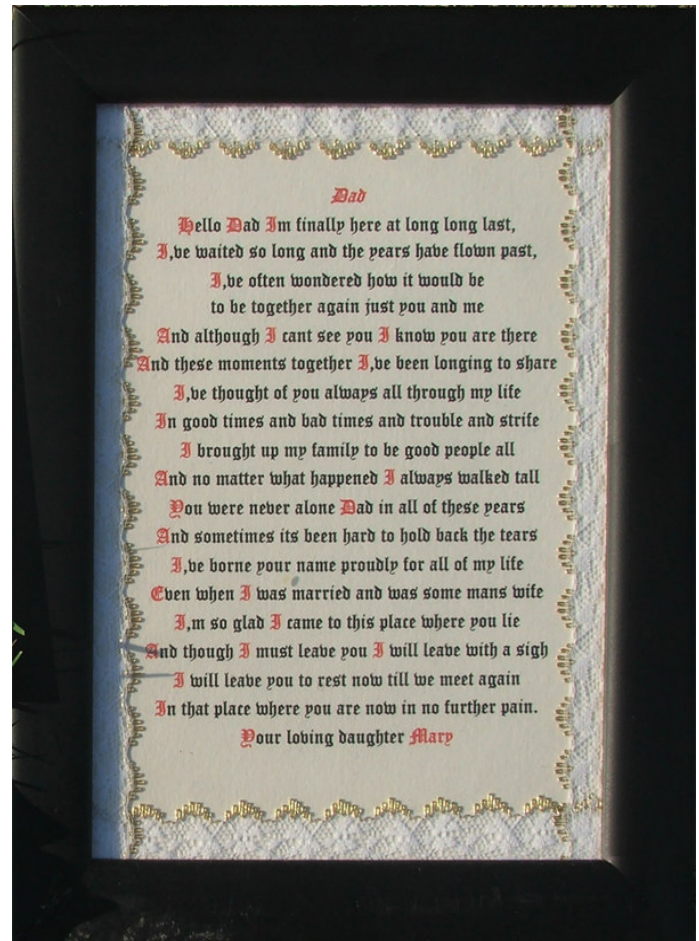 Dad
Hello Dad Im finally here at long long last,
I,ve waited so long and the years have flown past,
I,ve often wondered how it would be
to be together again just you and me
And although I cant see you I know you are there
And these moments together I,ve been longing to share
I,ve thought of you always all through my life
In good times and bad times and trouble and strife
I brought up my family to be good people all
And no matter what happened I always walked tall
You were never alone Dad in all of these years
And sometimes its been hard to hold back the tears
I,ve borne your name proudly for all of my life
Even when I was married and was some mans wife
I,m so glad I came to this place where you lie
And though I must leave you I will leave with a sigh
I will leave you to rest now till we meet again
In that place where you are now in no further pain.
Your loving daughter Mary